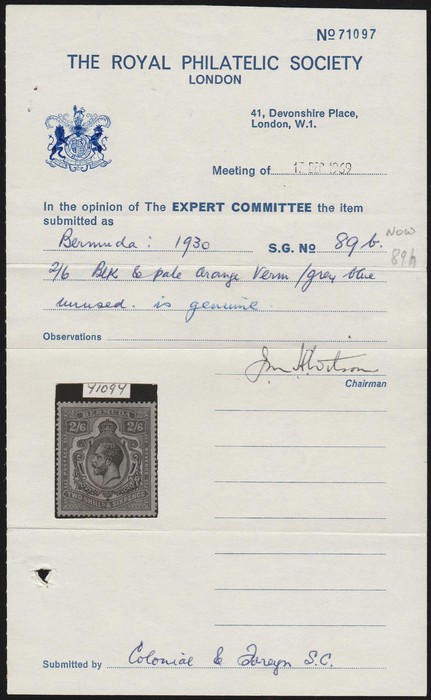 No 71097
THE ROYAL PHILATELIC SOCIETY
LONDON
41, Devonshire Place,
London, W.1.
Meeting of 17 SEP 1969
In the opinion of The EXPERT COMMITTEE the item
submitted as
Bermuda: 1930 S.G. No 89b. NOW
89h
2/6 Blk & pale orange Verm/grey blue
unused. is genuine
Observations
Chairman
41094
BERMUDA
2/6 2/6
TWO SHILLS & SIXPENCE
Submitted by Colonial & Foreign S.C.